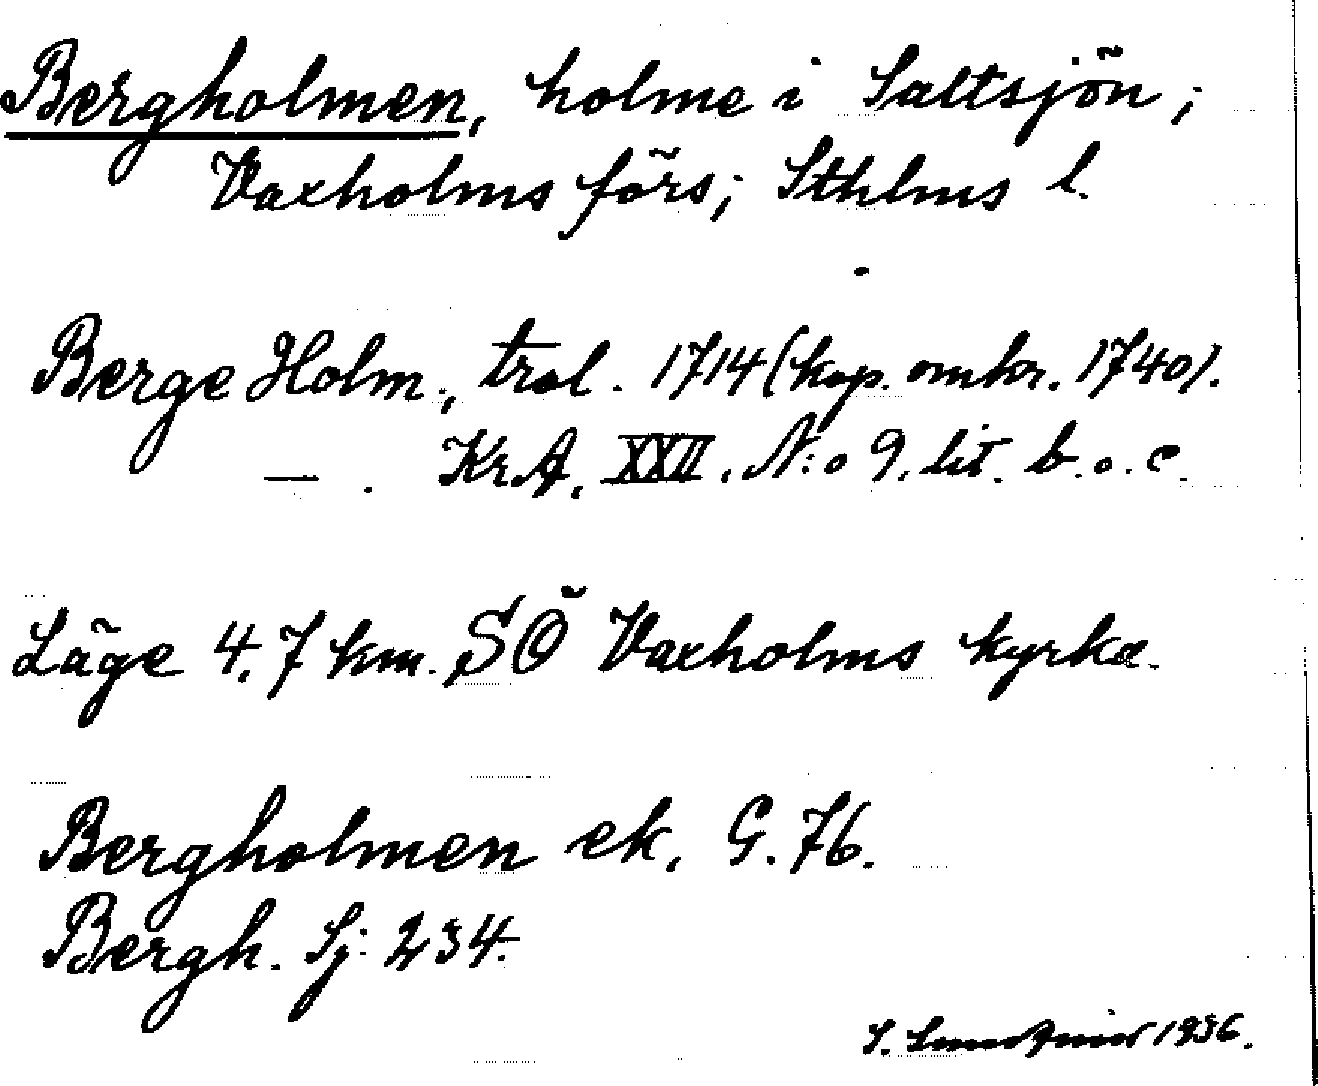 Bergholmen, holme i Saltsjön;
Vaxholms förs; Sthlms l.
Berge Holm., tral. 1714 (kop. omkr. 1740).
— . KrA, XXII. N:o 9. lit. b. o. c.
Läge 4.7 km. SÖ Vaxholms kyrka.
Bergholmen ek. G. 76.
Bergh. Sj: 234.
S. 1936.